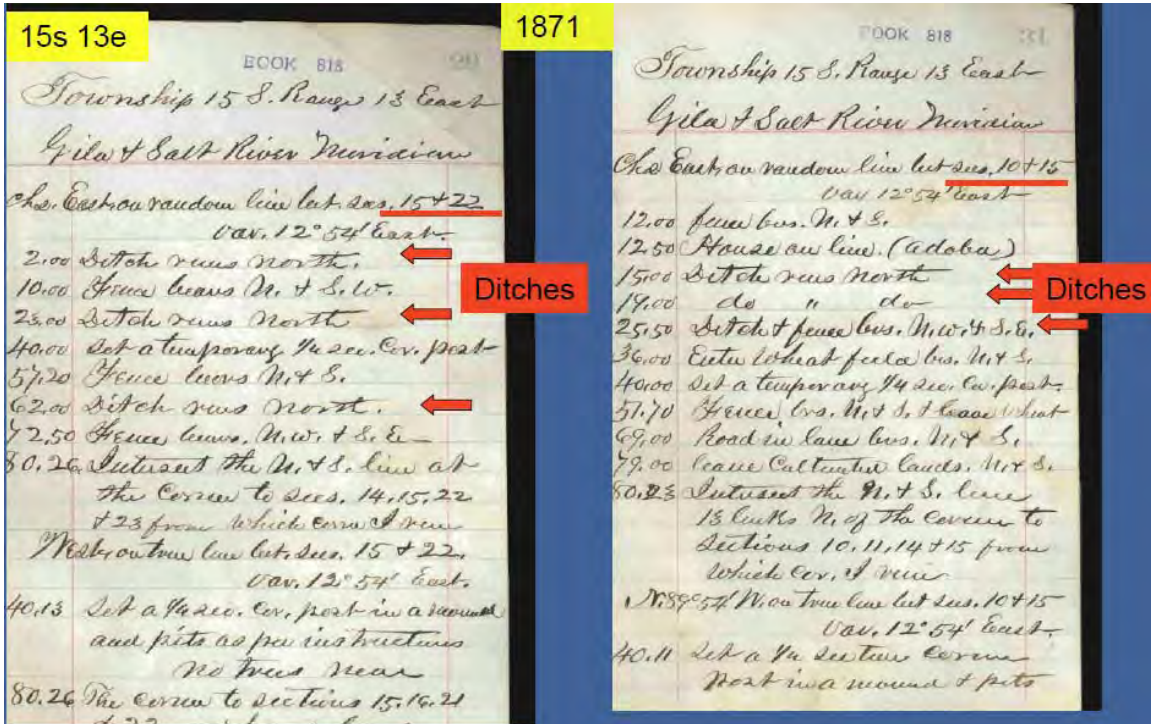 15s 13e
BOOK 818
Township 15 S. Range 13 East
Gila & Salt River Meridian
Chs. East on random line bet. secs. 15 & 22
Var. 12° 54' East.
2.00 Ditch runs north.
10.00 Fence bears N. & S.W.
23.00 Ditch runs north
40.00 Set a temporary 1/4 sec. Cor. post
57.20 Fence bears N. & S.
62.00 Ditch runs north.
72.50 Fence bears. N.W. & S.E.
80.26 Intersect the N. & S. line at
the Corner to secs. 14.15.22
& 23 from which corner I run
West, on true line bet. secs. 15 & 22.
Var. 12° 54' East.
40.13 Set a 1/4 sec. Cor. post in a mound
and pits as per instructions
No trees near
80.26 The corner to sections 15.16.21
Ditches
1871
BOOK 818
31
Township 15 S. Range 13 East
Gila & Salt River Meridian
Chs East on random line bet secs. 10 & 15
Var 12° 54' East
12.00 fence brs. N. & S.
12.50 House on line. (adoba)
15.00 Ditch runs north
19.00 do " do
25.50 Ditch & fence brs. N.W. & S.E.
36.00 Enter Wheat field brs. N. & S.
40.00 Set a temporary 1/4 sec. Cor. post.
51.70 Fence brs. N. & S. & leave wheat
69.00 Road in lane brs. N. & S.
79.00 leave lands. N & S.
80.23 Intersect the N. & S. line
13 links N. of the corner to
Sections 10.11.14 & 15 from
which cor. I run
N. 89° 54' W. on true line bet secs. 10 & 15
Var. 12° 54' East.
40.11 Set a 1/4 section corner
Post in a mound & pits
Ditches